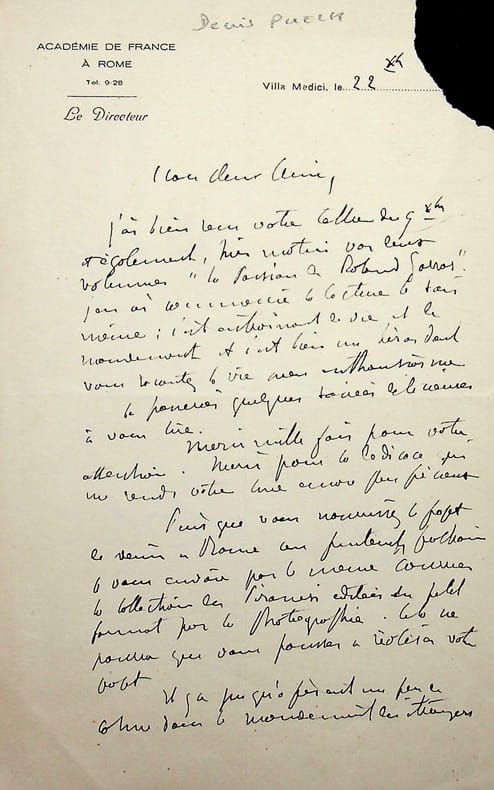 Denis PUECH
ACADÉMIE DE FRANCE
À ROME
Tel. 9-28
Le Directeur
Villa Medici, le 22 Xbre
Mon cher Ami,
j'ai bien reçu votre lettre du 9 Xbre
et également, hier matin vos deux
volumes "la Passion de Roland Garros".
J'en ai commencé la lecture le soir
même ; c'est entraînant de vie et de
mouvement et c'est bien un héros dont
vous racontez la vie avec enthousiasme
Je passerai quelques soirées délicieuses
à vous lire.
Merci mille fois pour votre
attention. Merci pour la dédicace qui
me rend votre livre encore plus précieux
Puisque vous nourrissez le projet
de venir à Rome au printemps prochain
je vous envoie par le même courrier
la collection des Piranesi éditée en petit
format par la Photographie.
pourra que vous pousser à réaliser votre
projet
Il y a jusqu'à présent un peu de
calme dans le mouvement des étrangers